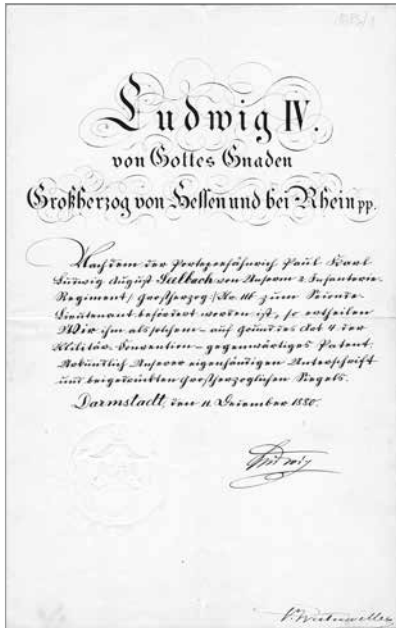 Ludwig IV.
von Gottes Gnaden
Großherzog von Hessen und bei Rhein pp.
Nachdem der Porteepeefähnrich Paul Karl
Ludwig August von Unserm 2. Infanterie-
Regiment (Großherzog) Nr. 116 zum Seconde-
Lieutenant befördert worden ist, so ertheilen
Wir ihm als solchem - auf Grund des Art. 4 der
Militär-Convention - gegenwärtiges Patent.
Urkundlich Unserer eigenhändigen Unterschrift
und beigedruckten Großherzoglichen Siegels.
Darmstadt, den 11. Dezember 1880.
Ludwig